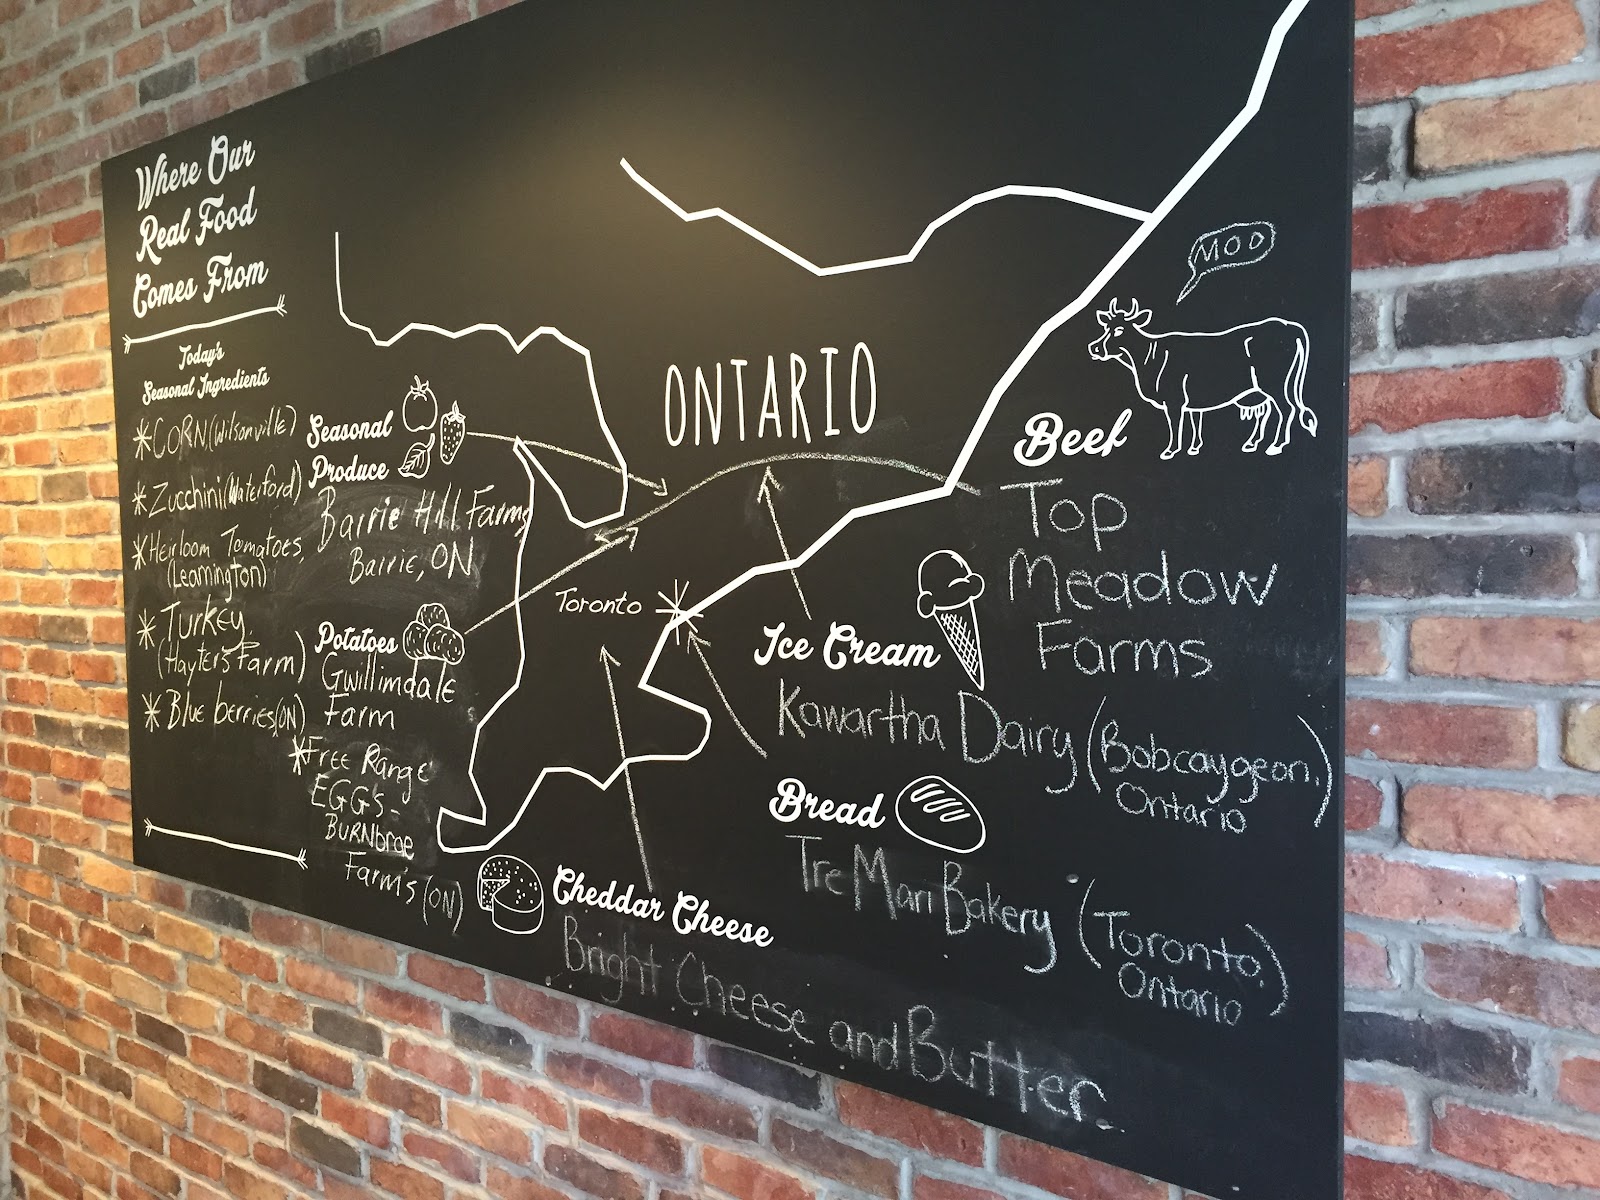 Where Our
Real Food
Comes From
Today's
Seasonal Ingredients
*CORN (Wilsonville)
*Zucchini (Waterford)
*Heirloom Tomatoes,
(Leamington)
*Turkey
(Hayter's Farm)
*Blue berries (ON)
Seasonal
Produce
Barrie Hill Farms
Barrie, ON
Potatoes
Gwillimdale
Farm
*Free Range
EGG's -
BURNbrae
Farm's (ON)
ONTARIO
Toronto
Cheddar Cheese
Bright Cheese and Butter
MOO
Beef
Top
Meadow
Farms
Ice Cream
Kawartha Dairy (Bobcaygeon,
Ontario)
Bread
Tre Mari Bakery (Toronto,
Ontario)